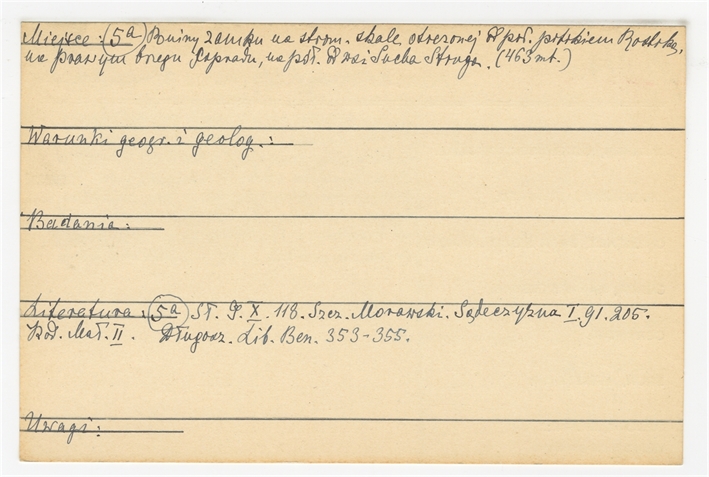 Miejsce: (5a) Ruiny zamku na strom. skale otrzezonej od poł. potokiem Rostoka,
na prawym brzegu Popradu, na płd. od wsi Sucha Struga. (463 mt.)
Warunki geogr. i geolog.:
Badania:
Literatura: (5a) Sł. G. X. 118. Szcz. Morawski. Sądeczyzna I. 91. 205.
Kod. Mał. II. Długosz. Lib. Ben. 353-355.
Uwagi: